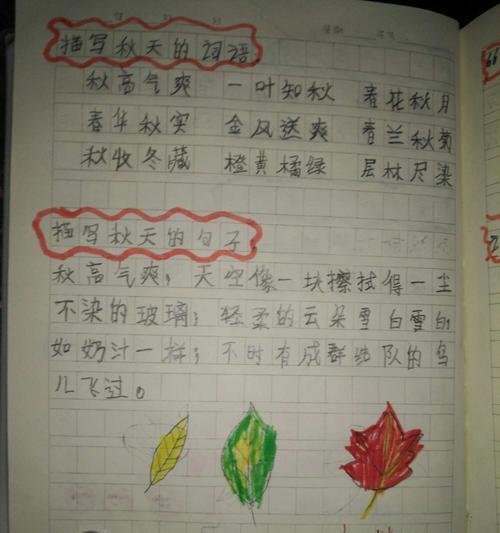 描写秋天的词语
秋高气爽 一叶知秋 春花秋月
春华秋实 金风送爽 春兰秋菊
秋收冬藏 橙黄橘绿 层林尽染
描写秋天的句子
秋高气爽，天空像一块擦拭得一尘
不染的玻璃；轻柔的云朵雪白雪白，
如奶汁一样；不时有成群结队的鸟
儿飞过。